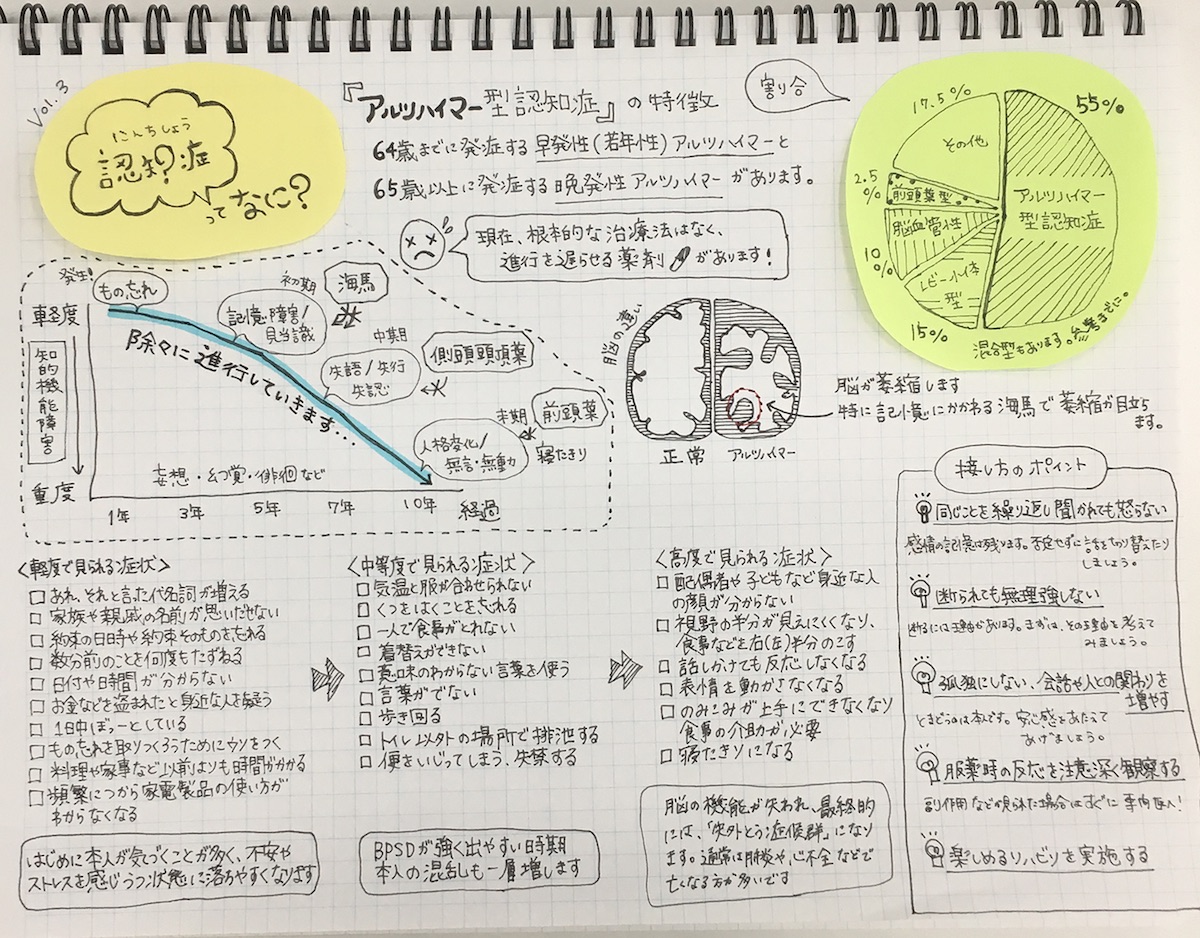 Vol.3
にんちしょう
認知症
?
って なに?
『アルツハイマー型認知症』の特徴
64歳までに発症する早発性(若年性)アルツハイマーと
65歳以上に発症する晩発性アルツハイマーがあります。
現在、根本的な治療法はなく、
進行を遅らせる薬剤 があります!
割合
55%
アルツハイマー
型認知症
17.5%
その他
2.5
%
前頭葉型
脳血管性
10
%
レビー小体
型
15%
混合型もあります。参考までに。
発生!
もの忘れ
初期
海馬
記憶障害/
見当識
中期
側頭頭頂葉
失語/失行
失認
末期
前頭葉
人格変化/
無言・無動
寝たきり
除々に進行していきます…
軽度
知的機能障害
重度
妄想・幻覚・徘徊など
1年 3年 5年 7年 10年 経過
脳の違い
正常 アルツハイマー
脳が萎縮します
特に記憶にかかわる海馬で萎縮が目立ち
ます。
<軽度で見られる症状>
□ あれ、それと言った代名詞が増える
□ 家族や親戚の名前が思いだせない
□ 約束の日日時や約束そのものを忘れる
□ 数分前のことを何度もたずねる
□ 日付や時間が分からない
□ お金などを盗まれたと身近な人を疑う
□ 1日中ぼーっとしている
□ もの忘れを取りつくろうためにウソをつく
□ 料理や家事など以前よりも時間がかかる
□ 頻繁につかう家電製品の使い方が
わからなくなる
はじめに本人が気づくことが多く、不安や
ストレスを感じうつ状態に落ちやすくなります
<中等度で見られる症状>
□ 気温と服が合わせられない
□ くつをはくことを忘れる
□ 一人で食事がとれない
□ 着替えができない
□ 意味のわからない言葉を使う
□ 言葉がでない
□ 歩き回る
□ トイレ以外の場所で排泄する
□ 便をいじってしまう、失禁する
BPSDが強く出やすい時期
本人の混乱も一層増します
<高度で見られる症状>
□ 配偶者や子どもなど身近な人
の顔が分からない
□ 視野の半分が見えにくくなり、
食事などを右(左)半分のこす
□ 話しかけても反応しなくなる
□ 表情を動かさなくなる
□ のみこみが上手にできなくなり
食事の介助が必要
□ 寝たきりになる
脳の機能が失われ、最終的
には、「失外とう症候群」になり
ます。通常は肺炎や心不全などで
亡くなる方が多いです
接し方のポイント
同じことを繰り返し聞かれても怒らない
感情の記憶は残ります。否定せずに話をきり替えたり
しましょう。
断られても無理強しない
断るには理由があります。まずは、その理由を考えて
みましょう。
孤独にしない、会話や人との関わりを
増やす
とまどうのは本人です。安心感をあたえて
あげましょう。
服薬時の反応を注意深く観察する
副作用などが見られた場合はすぐに専門医へ!
楽しめるリハビリを実施する